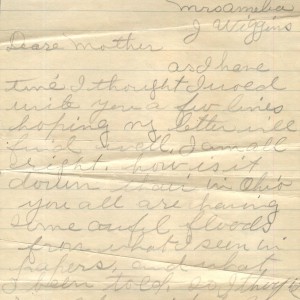 Mrs Amelia
J Wiggins
Deare Mother
as I have
time I thought I wood
write you a few lines
hoping my letter will
find well. I am all
right. how is it
down their in Ohio
you all are having
some auful floods
from what I seen in
papers, and what
I been told, so I hope